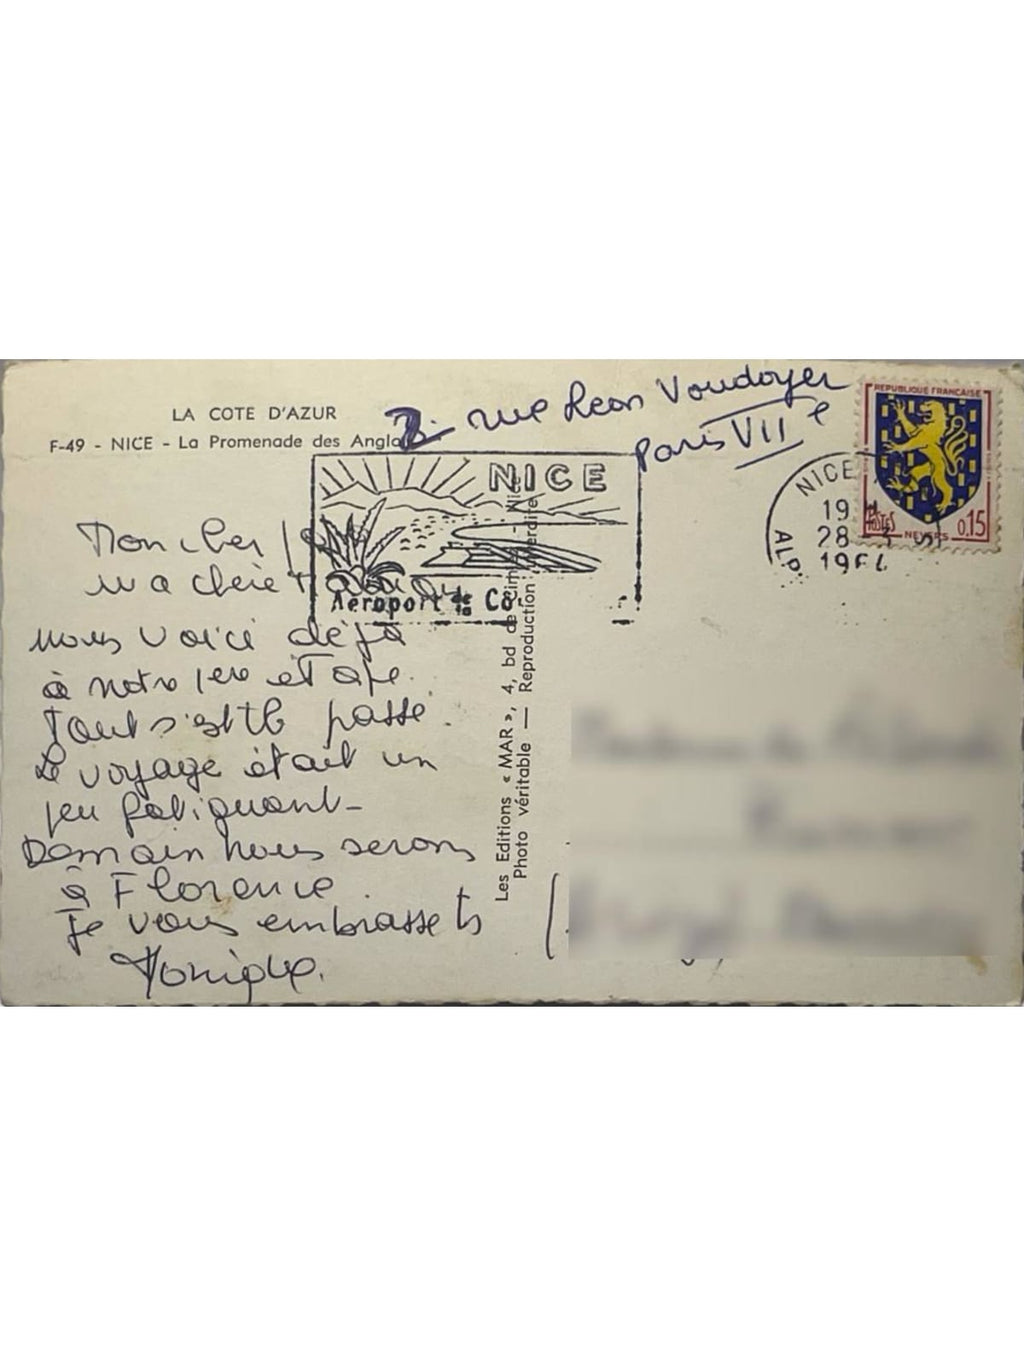 2. rue Leon Vaudoyer
Paris VII e
LA COTE D'AZUR
F-49 - NICE - La Promenade des Angla
REPUBLIQUE FRANCAISE
POSTES
NEVERS
0,15
NICE
19 H
28
1964
ALP.
NICE
Aéroport de la Co
Mon cher
ma chère
nous voici déjà
à notre 1ere étape.
Tout s'est tb passé.
Le voyage était un
peu fatiguant -
Demain nous serons
à Florence.
Je vous embrasse ts
Monique.
Les Editions « MAR », 4, bd de Cimiez - Nice
Photo véritable — Reproduction interdite